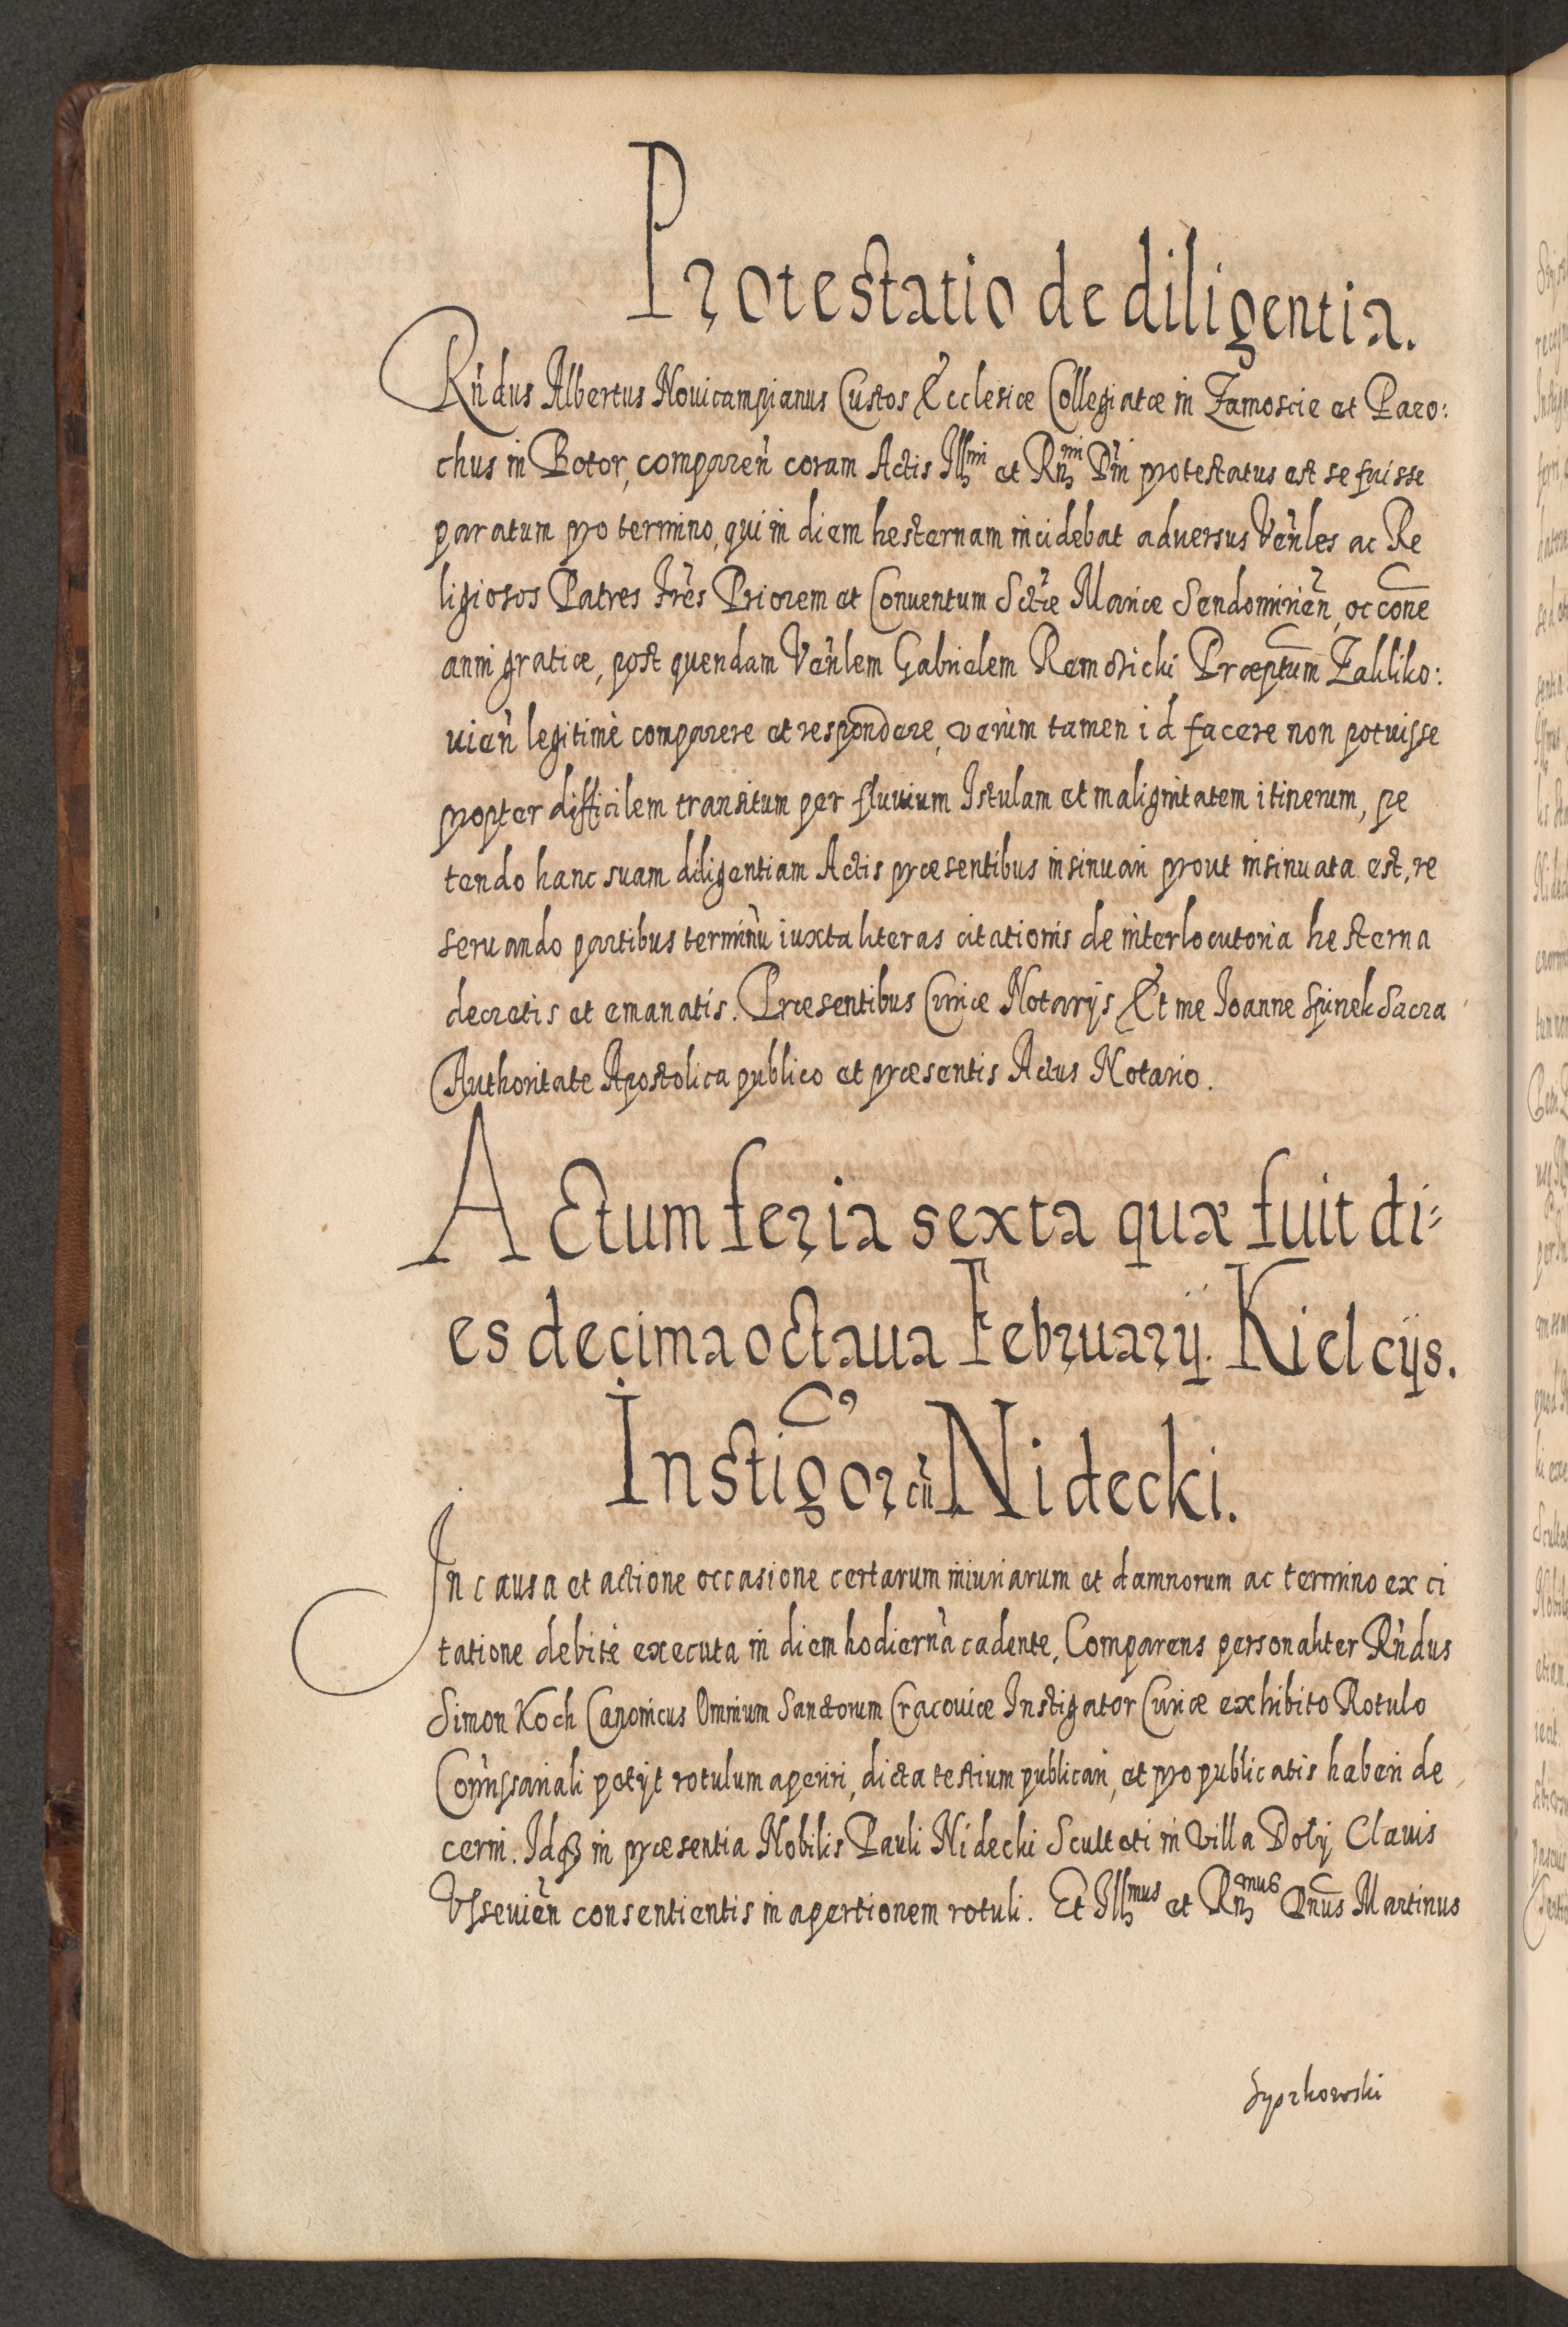 Protestatio de diligentia.
Rńdus Albertus Nouicampianus Custos Ecclesiæ Collegiatæ in Zamoscie et Paro:
chus in Botor, compareń coram Actis Illmi et Rnmi Dńi protestatus est se fuisse
paratum pro termino, qui in diem hesternam incidebat aduersus Veńles ac Re
ligiosos Patres Fres Priorem et Conuentum Sctæ Mariæ Sendomirień, occone
anni gratiæ, post quendam Veńlem Gabrielem Præptum Zakliko:
uień legitimè comparere et respondere, verùm tamen id facere non potuisse
propter difficilem transitum per fluuium Istulam et malignitatem itinerum, pe
tendo hanc suam diligentiam Actis præsentibus insinuari prout insinuata est, re
seruando partibus terminù iuxta literas citationis de interlocutoria hesterna
decretis et emanatis. Præsentibus Curiæ Notarijs Et me Ioanne Spinek Sacra
Authoritate Apostolica publico et præsentis Actus Notario.
Actum feria sexta quæ fuit di=
es decima octaua February. Kielcijs.
Instigor cù Nidecki.
In causa et actione occasione certarum iniuriarum et damnorum ac termino ex ci
tatione debitè executa in diem hodiernà cadente, Comparens personaliter Rńdus
Simon Koch Canonicus Omnium Sanctorum Cracouiæ Instigator Curiæ exhibito Rotulo
Comissariali petijt rotulum aperiri, dicta testium publicari, et pro publicatis haberi de
cerni. Idq3 in præsentia Nobilis Pauli Nidecki Sculteti in villa Doły Clauis
Vssevień consentientis in apertionem rotuli. Et Illmus et Rnmus Dnus Martinus